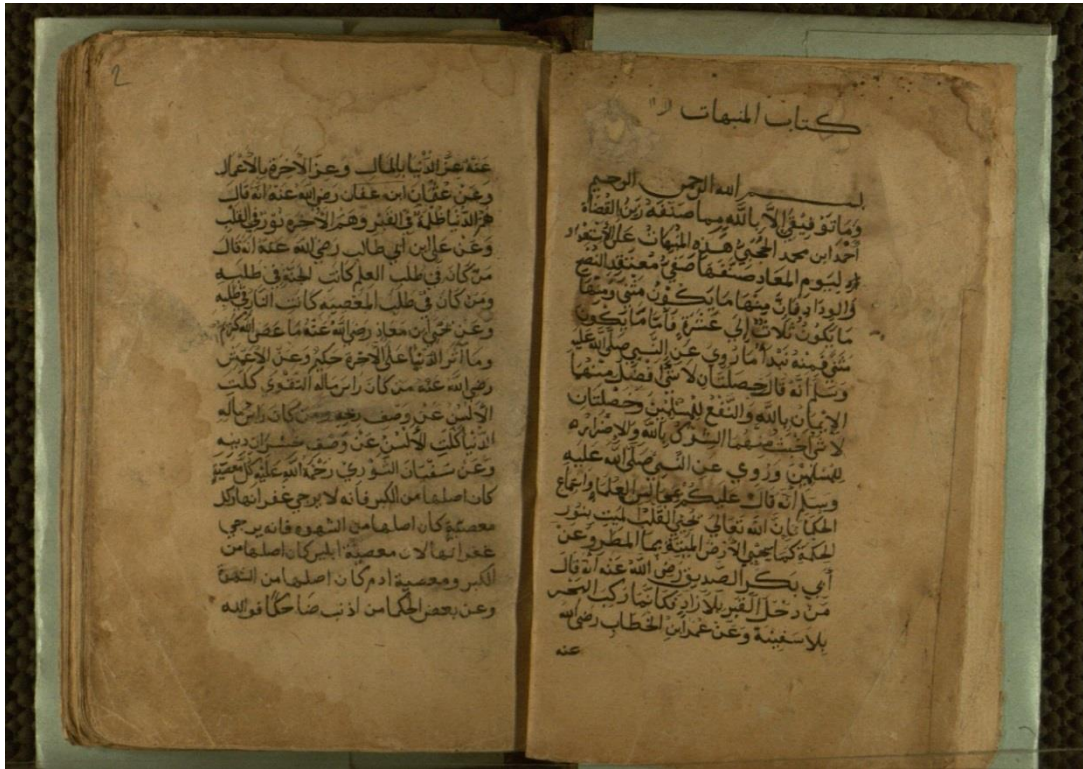 كتاب المنبهات
بسم الله الرحمن الرحيم
وما توفيقي إلا بالله مما صنفه زين القضاة
أحمد ابن محمد الحجي هذه المنبهات على الاستعداد
ليوم المعاد صنفها صفي معتقد النصح
والوداد فان منها ما يكون مثنى ومنها
ما يكون ثلاث إلى عشرة فأما ما يكون
مثنى فمنه نبدأ ما روي عن النبي صلى الله عليه
وسلم أنه قال خصلتان لا شئ افضل منهما
الإيمان بالله والنفع للمسلمين وخصلتان
لا شئ اخبث منهما الشرك بالله والاضرار
للمسلمين وروي عن النبي صلى الله عليه
وسلم انه قال عليكم بمجالس العلما واستماع
الحكما فإن الله تعالى يحيي القلب الميت بنور
الحكمة كما يحيي الأرض الميتة بما المطر وعن
أبي بكر الصديق رضي الله عنه أنه قال
من دخل القبر بلا زاد فكأنما ركب البحر
بلا سفينة وعن عمر ابن الخطاب رضي الله
عنه
2
عنه عز الدنيا بالمال وعز الآخرة بالاعمال
وعن عفان ابن عفان رضي الله عنه انه قال
هم الدنيا ظلمة في القبر وهم الآخرة نور في القلب
وعن علي ابن أبي طالب رضي الله عنه انه قال
من كان في طلب العلم كانت الجنة في طلبه
ومن كان في طلب المعصية كانت النار في طلبه
وعن يحيى ابن معاذ رضي الله عنه ما عصى الله كريم
وما آثر الدنيا على الآخرة حكيم وعن الأعمش
رضي الله عنه من كان راس ماله التقوى كلت
الألسن عن وصف ربحه ومن كان راس ماله
الدنيا كلت الألسن عن وصف خسران دينه
وعن سفيان الثوري رحمة الله عليه كل معصية
كان اصلها من الكبر فانه لا يرجى غفرانها وكل
معصية كان اصلها من الشهوه فانه يرجى
غفرانها لان معصية ابليس كان اصلها من
الكبر ومعصية ادم كان اصلها من الشهوة
وعن بعض الحكما من اذنب ضاحكا فان الله